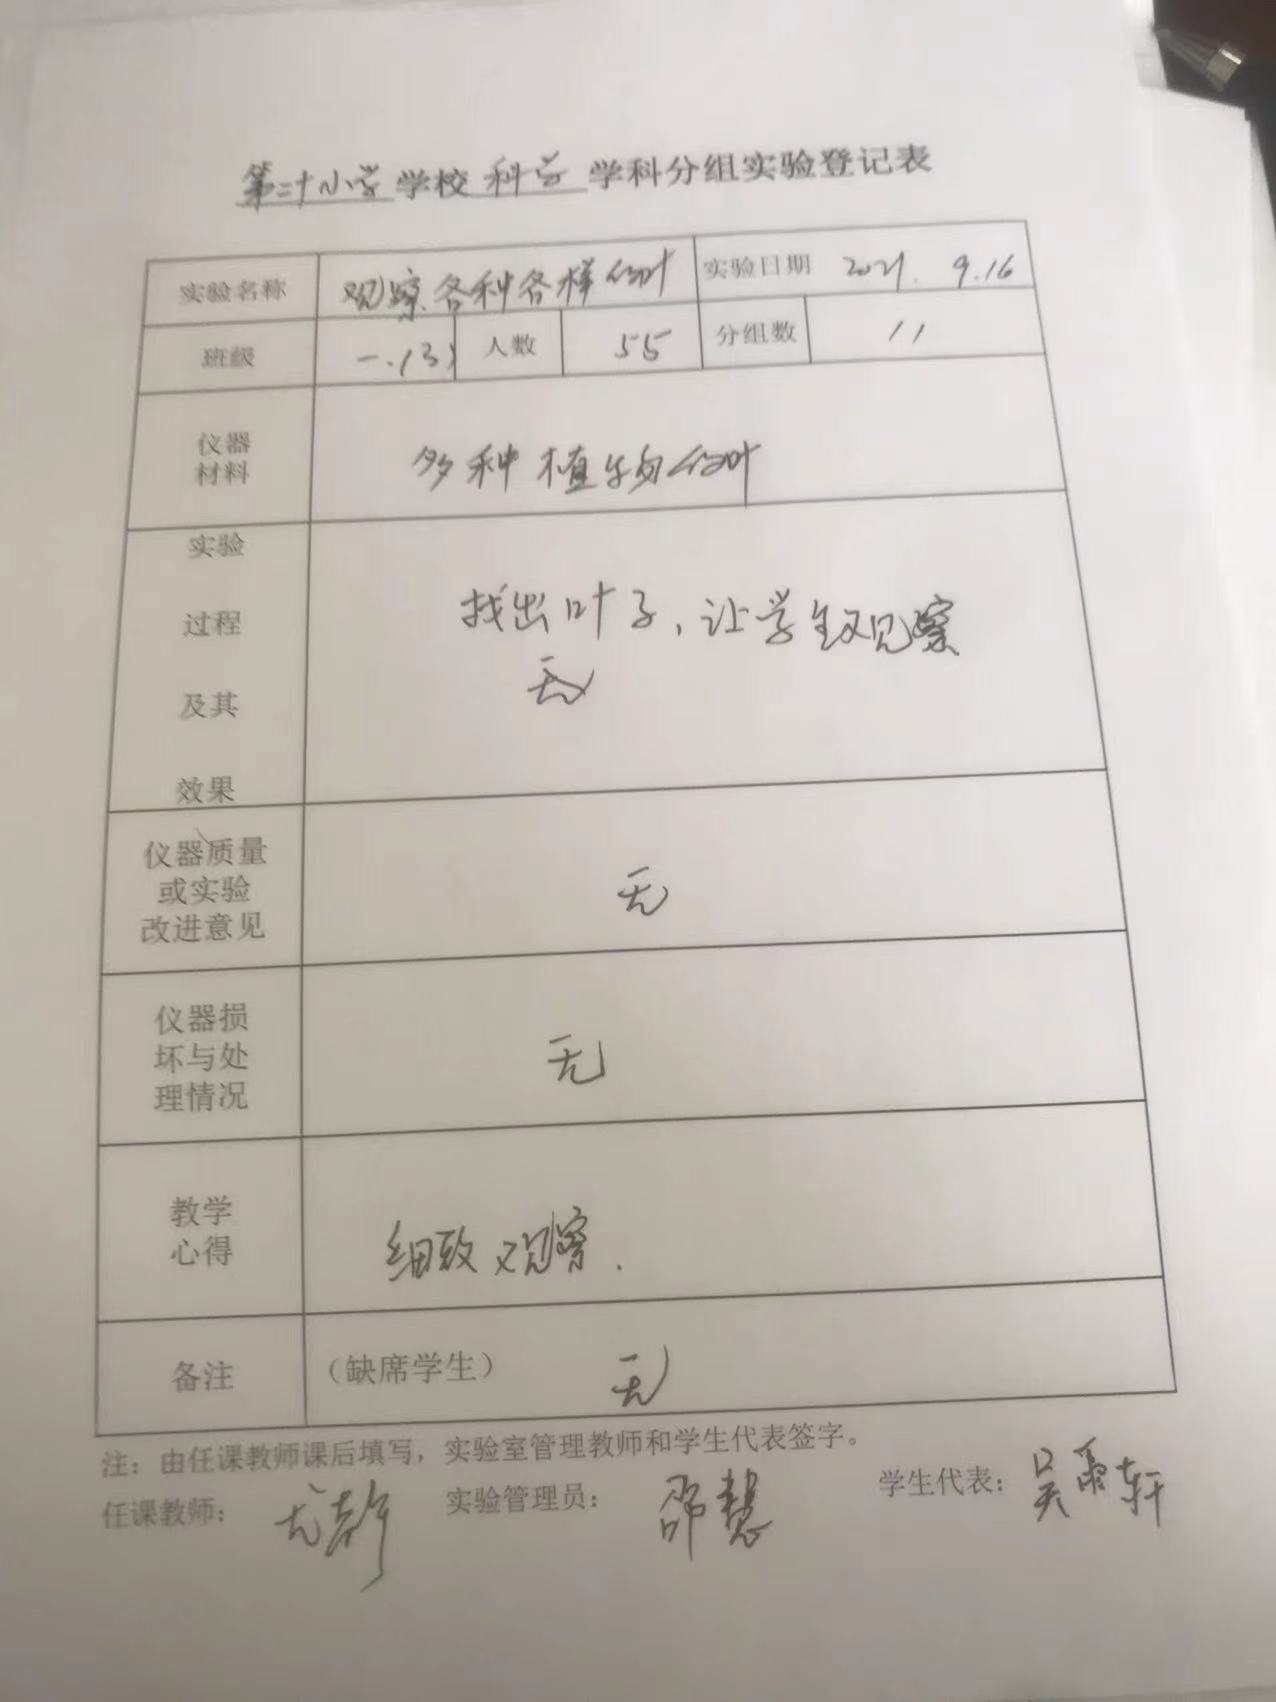 第二十小学学校科学学科分组实验登记表
实验名称 观察各种各样的叶 实验日期 2021. 9.16
班级 一.(3) 人数 55 分组数 11
仪器
材料
多种植物的叶
实验
过程
及其
效果
找出叶子,让学生观察
无
仪器质量
或实验
改进意见
无
仪器损
坏与处
理情况
无
教学
心得
细致观察.
备注 (缺席学生) 无
注:由任课教师课后填写,实验室管理教师和学生代表签字。
任课教师: 实验管理员:邵慧 学生代表:吴雨轩